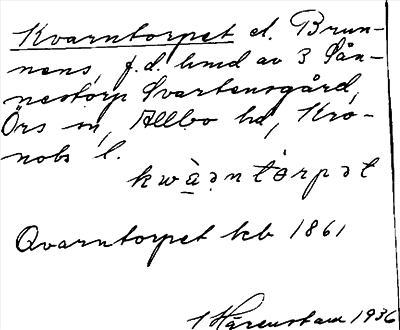 Kvarntorpet el. Brun-
nens, f.d. hmd av 3 Sän-
nestorp Svartensgård,
Örs sn, Allbo hd, Kro-
nobs l.
kwàǝntòrpǝt
Qvarntorpet kb 1861
Härenstam 1936